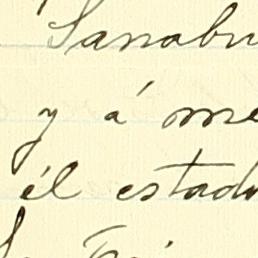 Sanabr
y á me
él estad